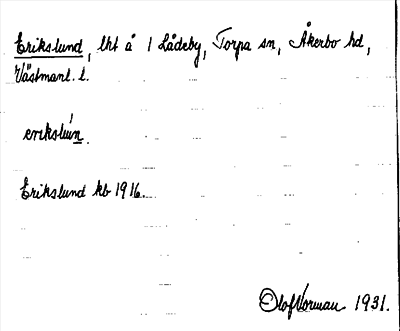 Erikslund, lht å 1 Lådeby, Torpa sn, Åkerbo hd,
Västmanl. l.
Erikslund kb 1916.
Olof Norman 1931.